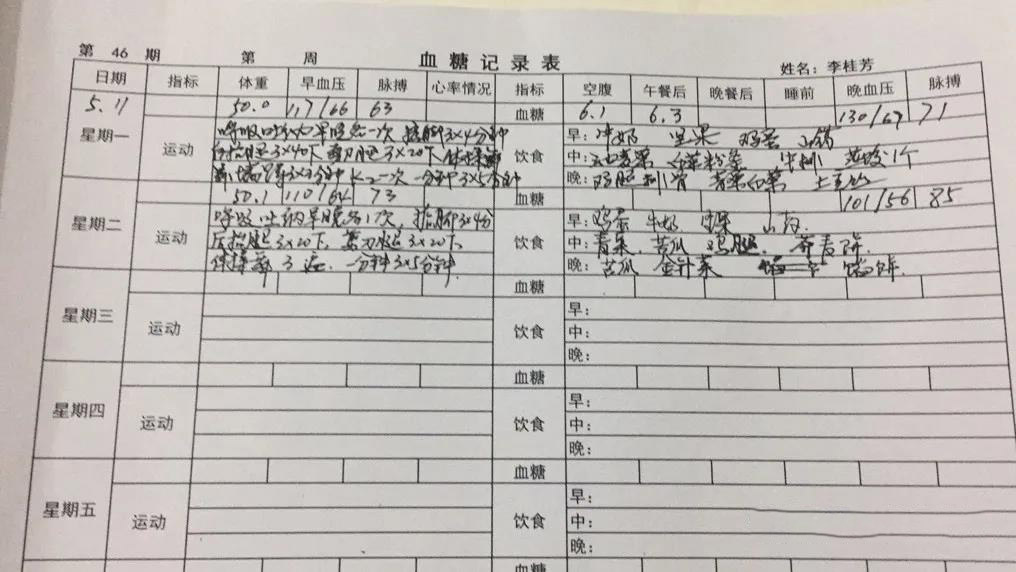 第 46 期 第 周 血糖记录表 姓名：李桂芳
日期 指标 体重 早血压 脉搏 心率情况 指标 空腹 午餐后 晚餐后 睡前 晚血压 脉搏
5.11 50.0 117/66 63 血糖 6.1 6.3 130/67 71
星期一 运动 饮食
呼吸吐纳早晚各一次 3×4分钟
3×40下 3×20下
一次 一分钟3×5分钟
早： 牛奶 坚果 鸡蛋
中： 1个
晚： 鸡腿 排骨 青菜白菜
50.1 110/64 73 血糖 101/56 85
星期二 运动 饮食
呼吸吐纳早晚各1次， 3×4分
后抬腿3×20下， 3×20下
3遍. 一分钟3×5分钟.
早： 鸡蛋 牛奶 坚果 山药
中： 青菜. 苦瓜 鸡腿. 荞麦饼.
晚： 苦瓜 金针菜 饼.
血糖
星期三 运动 饮食
早：
中：
晚：
血糖
星期四 运动 饮食
早：
中：
晚：
血糖
星期五 运动 饮食
早：
中：
晚：
血糖